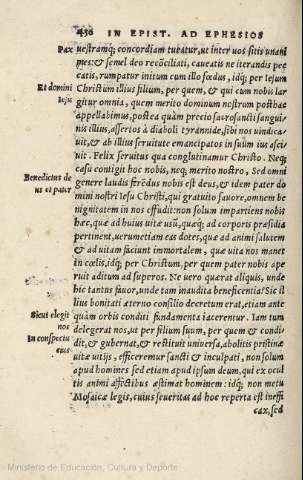 450 IN EPIST. AD EPHESIOS
Pax uestramq́; concordiam turbatur, ut inter uos sitis unani
mes: & semel deo recõciliati, caueatis ne iterandis pec
catis, rumpatur initum cum illo fœdus, idq́; per Iesum
Et domini Christum illius filium, per quem, & qui cum nobis lar
Iesu gitur omnia, quem merito dominum nostrum posthac
appellabimus, postea quàm precio sacrosancti sangui-
nis illius, assertos à diaboli tyrannide, sibi nos uindica
uit, & ab illius seruitute emancipatos in suum ius asci
uit. Felix seruitus qua conglutinamur Christo. Neq́;
casu contigit hoc nobis, neq́; merito nostro, Sed omni
Benedictus de genere laudis ferẽdus nobis est deus, & idem pater do
us et pater mini nostri Iesu Christi, qui gratuito fauore, omnem be
nignitatem in nos effudit: non solum impartiens nobis
hæc, quæ ad huius uitæ usũ, quæq́; ad corporis præsidia
pertinent, uerumetiam eas dotes, quæ ad animi salutem
& ad uitam faciunt immortalem, quæ uita nos manet
in cœlis, idq́; per Christum, per quem pater nobis ape
ruit aditum ad superos. Ne uero quærat aliquis, unde
hic tantus fauor, unde tam inaudita beneficentia? Sic il
lius bonitati æterno consilio decretum erat, etiam ante
Sicut elegit quàm orbis conditi fundamenta iacerentur. Iam tum
nos delegerat nos, ut per filium suum, per quem & condi
In conspectu dit, & gubernat, & rectituit uniuersa, abolitis pristinæ
eius uitæ uitijs, efficeremur sancti & inculpati, non solum
apud homines sed etiam apud ipsum deum, qui ex ocul
tis animi affectibus æstimat hominem: idq́; non metu
Mosaicæ legis, cuius seueritas ad hoc reperta est ineffi
cax, sed
Ministerio de Educación, Cultura y Deporte